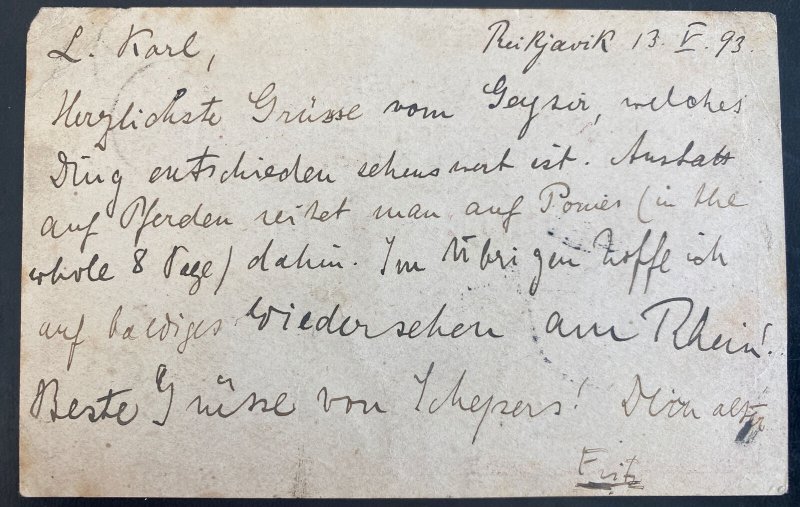 L. Karl,
Reikjavik 13. V. 93.
Herzlichste Grüsse vom Geysir, welches
Ding entschieden sehenswert ist. Anstatt
auf Pferden reitet man auf Ponies (in the
whole 8 Tage) dahin. Im Übrigen hoffe ich
auf baldiges Wiedersehen am Rhein!
Beste Grüsse von Schepers! Dein alter
Fritz